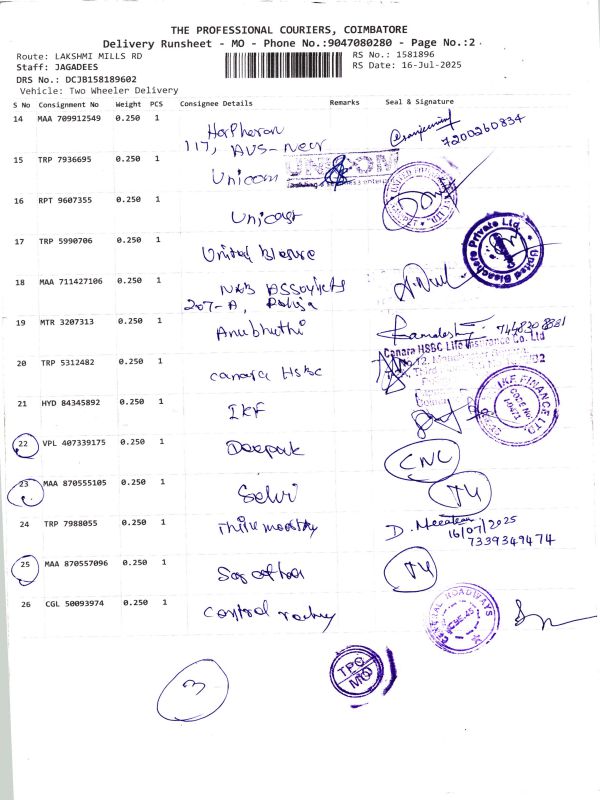 THE PROFESSIONAL COURIERS, COIMBATORE
Delivery Runsheet - MO - Phone No.:9047080280 - Page No.:2
Route: LAKSHMI MILLS RD
RS No.: 1581896
Staff: JAGADEES
RS Date: 16-Jul-2025
DRS No.: DCJB158189602
Vehicle: Two Wheeler Delivery
S No Consignment No Weight PCS Consignee Details Remarks Seal & Signature
14 MAA 709912549 0.250 1
117, AVS-Neer
7200260834
15 TRP 7936695 0.250 1 Unicorn
16 RPT 9607355 0.250 1 Unicast
17 TRP 5990706 0.250 1 United Blessure
United Bleachers Private Ltd.
18 MAA 711427106 0.250 1
207-A,
19 MTR 3207313 0.250 1 Anubhuthi
7448308881
20 TRP 5312482 0.250 1 Canara Hsbc
Canara HSBC Life Insurance Co. Ltd
21 HYD 84345892 0.250 1 IKF
IKF FINANCE LTD.
22 VPL 407339175 0.250 1 Deepak CNC
23 MAA 870555105 0.250 1 Selvi
24 TRP 7988055 0.250 1 Thirumoorthy
16/07/2025
7339349474
25 MAA 870557096 0.250 1
26 CGL 50093974 0.250 1
ROADWAYS
TPC
MO
3